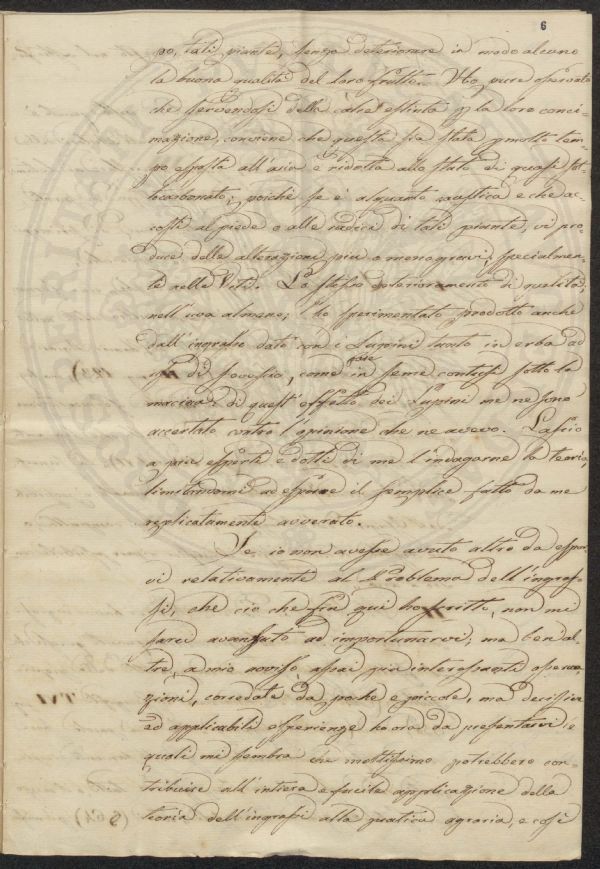 6
po, tali piante, senza deteriorare in modo alcuno
la buona qualità del loro frutto. Ho pure osservato
che servendosi della calce estinta p la loro conci-
mazione, conviene che questa sia stata p molto tem-
po esposta all'aria e ridotta allo stato di quasi sot-
tocarbonato; poichè se è alquanto caustica e che ac-
costi al piede o alle radici di tali piante, vi pro-
duce delle alterazioni più o meno gravi, specialmen-
te nelle Viti. Lo stesso deterioramento di qualità,
nell'uva almeno, l'ho sperimentato prodotto anche
dall'ingrasso dato con Lupini tanto in erba ad
uso di sovescio, come in seme contusi sotto la
macina: di quest'effetto dei Lupini me ne sono
accertato contro l'opinione che ne avevo. Lascio
a più esperti e dotti di me l'indagarne la teoria,
limitandomi ad esporre il semplice fatto da me
replicatamente avverato.
Se io non avesse avuto altro da espor-
vi relativamente al Problema dell'ingras-
si, che ciò che fin qui ho scritto, non mi
sarei avanzato ad importunarvi; ma ben al-
tre, a mio avviso assai più interessanti osserva-
zioni, corredate da poche e piccole, ma decisive
ed applicabili esperienze ho ora da presentarvi le
quali mi sembra che moltissimo potrebbero con-
tribuire all'intiera e facile applicazione della
teoria dell'ingrassi alla pratica agraria, e così